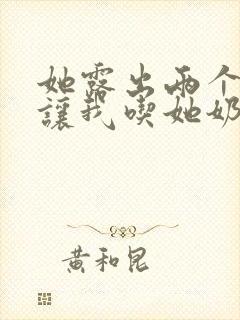 她露出两个
讓我喫她奶
黄和昆